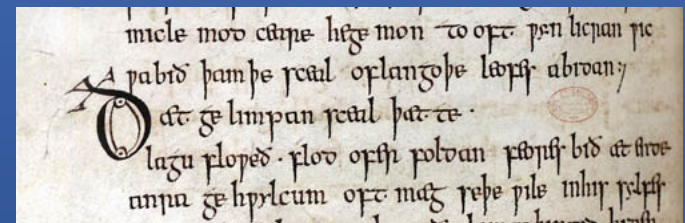 micle mod ceare he ge mon to oft ƿyn licran ƿic
ƿa bið þam þe sceal oflangoþe leofes abidan :⁊
Ðæt ge limpan sceal þæt te ·
lagu floƿeð · flod ofer foldan feores bið æt ende
anra ge hƿylcum oft mæg seþe ƿile inhis sylfes